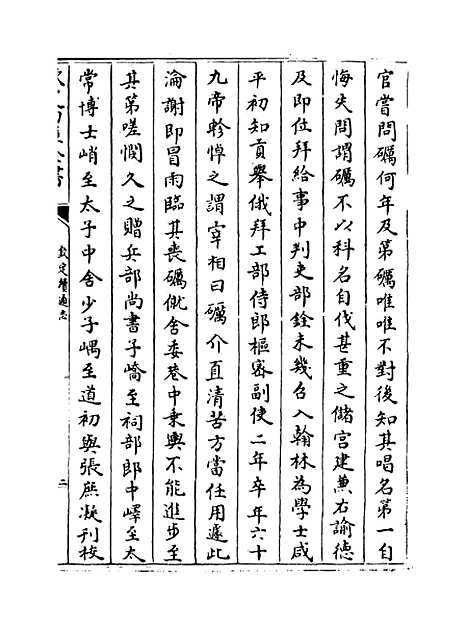 官嘗問礪何年及第礪唯唯不對後知其唱名第一自
悔失問謂礪不以科名自伐甚重之儲宮建兼右諭德
及即位拜給事中判吏部銓未幾召入翰林為學士咸
平初知貢舉俄拜工部侍郎樞密副使二年卒年六十
九帝軫悼之謂宰相曰礪介直清苦方當任用遽此
淪謝即冒雨臨其喪礪僦舍委巷中乗輿不能進步至
其第嗟憫久之贈兵部尚書子嶠至祠部郎中嶧至太
常博士峭至太子中舍少子嵎至道初與張庶凝刊校
欽定續通志
二